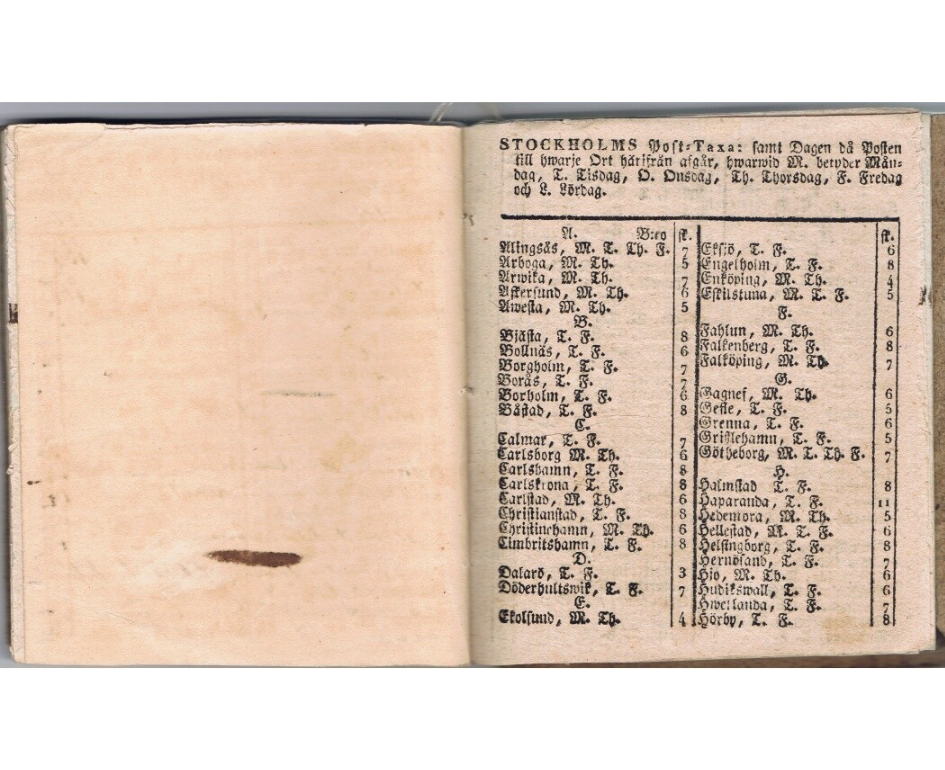 STOCKHOLMS Post-Taxa: samt Dagen då Posten
till hwarje Ort härifrån afgår, hwarwid M. betyder Mån-
dag, T. Tisdag, O. Onsdag, Th. Thorsdag, F. Fredag
och L. Lördag.
A. B:co sk.
Alingsås, M. T. Th. F. 7
Arboga, M. Th. 5
Arwika, M. Th. 7
Askersund, M. Th. 6
Awesta, M. Th. 5
B.
Bjästa, T. F. 8
Bollnäs, T. F. 6
Borgholm, T. F. 7
Borås, T. F. 7
Borholm, T. F. 6
Båstad, T. F. 8
C.
Calmar, T. F. 7
Carlsborg M. Th. 6
Carlshamn, T. F. 8
Carlskrona, T. F. 8
Carlstad, M. Th. 6
Christianstad, T. F. 8
Christinehamn, M. Th. 6
Cimbritshamn, T. F. 8
D.
Dalarö, T. F. 3
Döderhultswik, T. F. 7
E.
Ekolsund, M. Th. 4
sk.
Eksjö, T. F. 6
Engelholm, T. F. 8
Enköping, M. Th. 4
Eskilstuna, M. T. F. 5
F.
Fahlun, M. Th. 6
Falkenberg, T. F. 8
Falköping, M. Th. 7
G.
Gagnef, M. Th. 6
Gefle, T. F. 5
Grenna, T. F. 6
Grißlehamn, T. F. 5
Götheborg, M. T. Th. F. 7
H.
Halmstad T. F. 8
Haparanda, T. F. 11
Hedemora, M. Th. 5
Hellestad, M. T. F. 6
Helsingborg, T. F. 8
Hernösand, T. F. 7
Hjo, M. Th. 6
Hudikswall, T. F. 6
Hwetlanda, T. F. 7
Hörby, T. F. 8